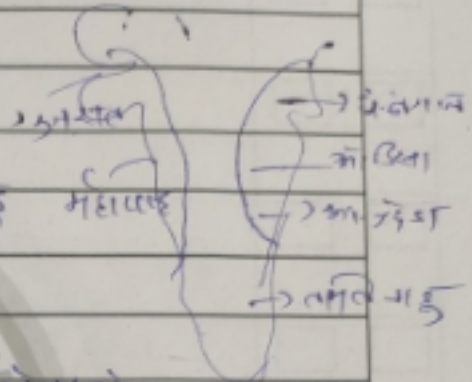 गुजरात
महाराष्ट्र
→ प. बंगाल
ओडिशा
→ आ. प्रदेश
→ तमिलनाडु